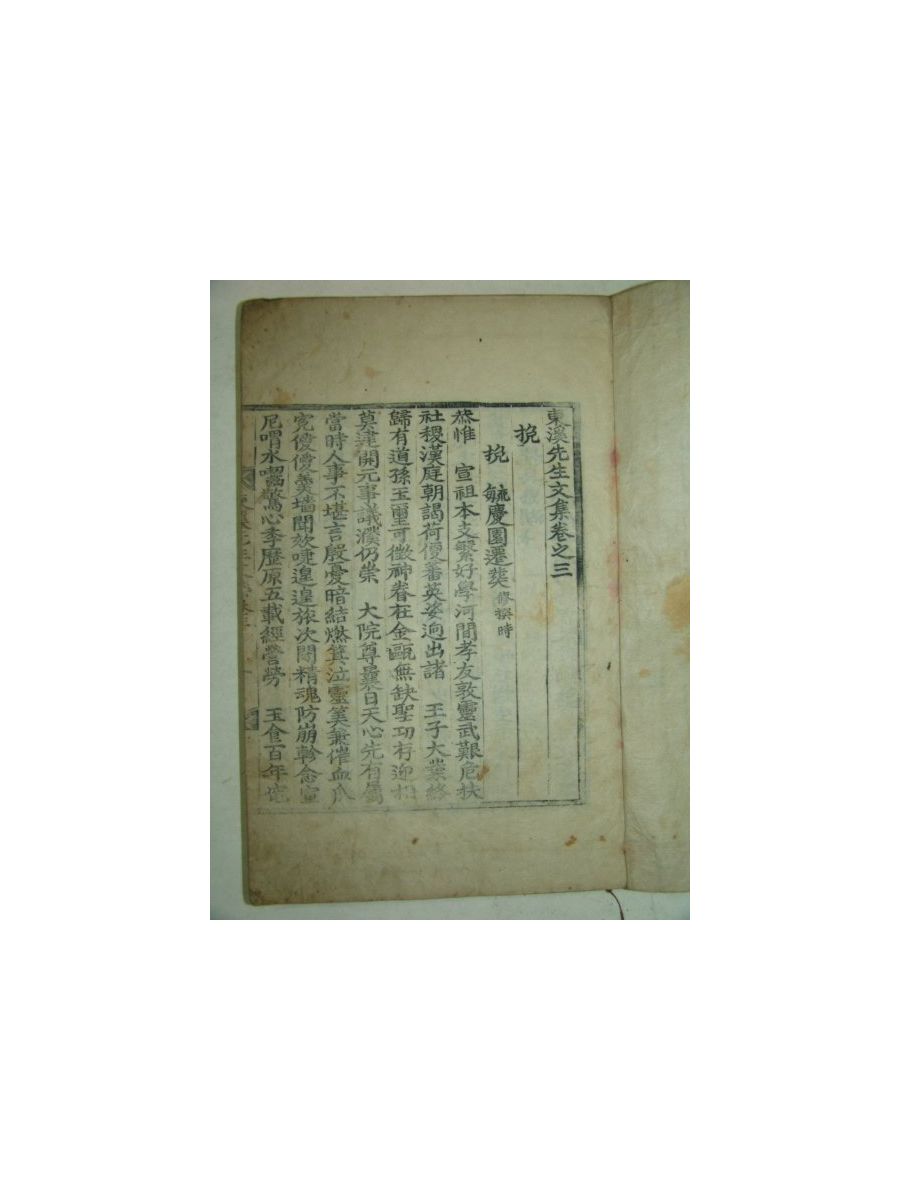 東溪先生文集卷之三
挽
挽 毓慶園遷葬 修撰時
恭惟 宣祖本支繁好學河間孝友敦靈武艱危扶
社稷漢庭朝謁荷優蕃英姿逈出諸 王子大業終
歸有道孫玉璽可徵神眷在金甌無缺聖功存迎相
莫違開元事議濮仍崇 大院尊曩日天心先有屬
當時人事不堪言殷憂暗結燃箕泣靈筭兼催血爪
寃優優羹墻聞欬啑遑遑旅次閟精魂防崩軫念宣
尼喟水囓驚心季歷原五載經營勞 玉食百年宅